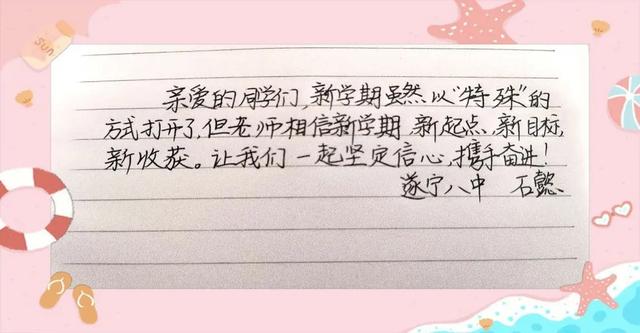 SUN
亲爱的同学们,新学期虽然以“特殊”的
方式打开了,但老师相信新学期,新起点,新目标,
新收获。让我们一起坚定信心,携手奋进!
遂宁八中 石懿